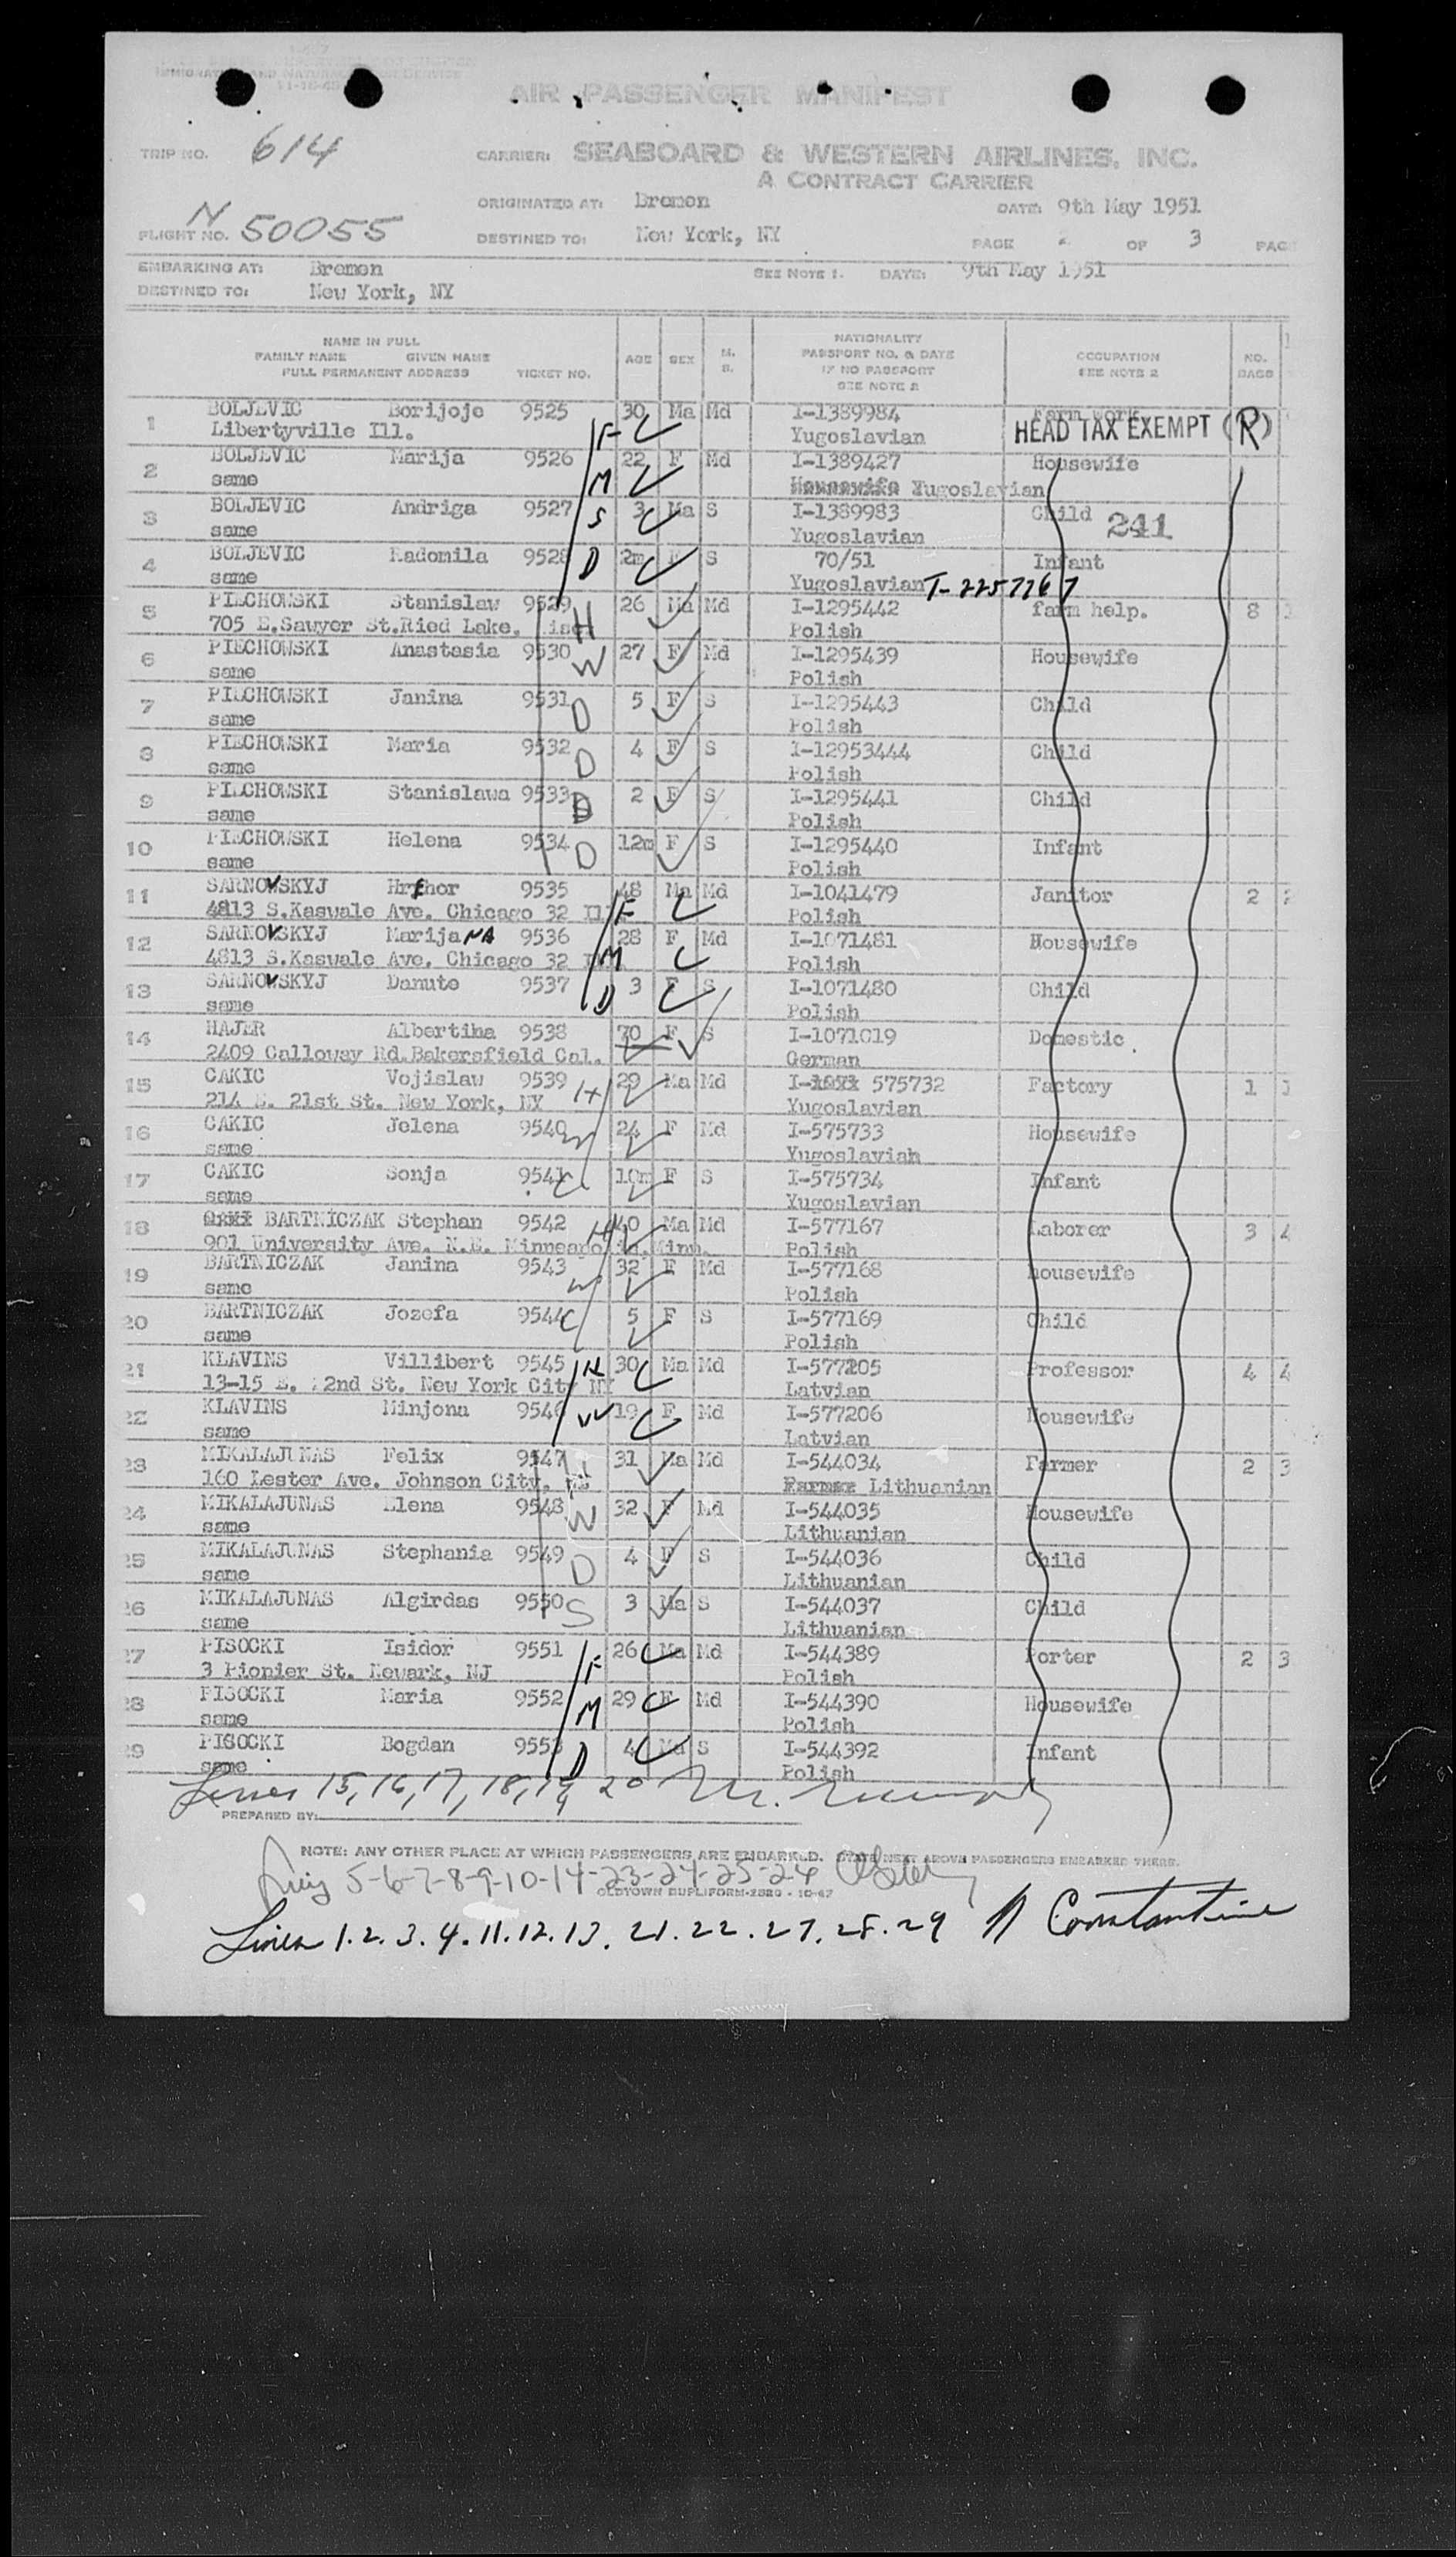 IMMIGRATION AND NATURALIZATION SERVICE
11-16-45
AIR PASSENGER MANIFEST
TRIP NO. 614 CARRIER: SEABOARD & WESTERN AIRLINES, INC.
A CONTRACT CARRIER
ORIGINATED AT: Bremen DATE: 9th May 1951
FLIGHT NO. N 50055 DESTINED TO: New York, NY PAGE 2 OF 3 PAG
EMBARKING AT: Bremen SEE NOTE 1. DATE: 9th May 1951
DESTINED TO: New York, NY
NAME IN FULL
FAMILY NAME GIVEN NAME
FULL PERMANENT ADDRESS TICKET NO. AGE SEX M. S. NATIONALITY PASSPORT NO. & DATE IF NO PASSPORT SEE NOTE 2 OCCUPATION SEE NOTE 2 NO. BAGS
1 BOLJEVIC Borijoje 9525 30 Ma Md I-1389984 Farm work
Libertyville Ill. F Yugoslavian HEAD TAX EXEMPT (R)
2 BOLJEVIC Marija 9526 22 F Md I-1389427 Housewife
same M Housewife Yugoslavian
3 BOLJEVIC Andriga 9527 S 3 Ma S I-1389983 Child 241
same Yugoslavian
4 BOLJEVIC Radomila 9528 D 2m F S 70/51 Infant
same Yugoslavian T-2257767
5 PIECHOWSKI Stanislaw 9529 26 Ma Md I-1295442 farm help. 8
705 E.Sawyer St.Ried Lake. H Polish
6 PIECHOWSKI Anastasia 9530 W 27 F Md I-1295439 Housewife
same Polish
7 PIECHOWSKI Janina 9531 D 5 F S I-1295443 Child
same Polish
8 PIECHOWSKI Maria 9532 D 4 F S I-12953444 Child
same Polish
9 PIECHOWSKI Stanislawa 9533 D 2 F S I-1295441 Child
same Polish
10 PIECHOWSKI Helena 9534 D 12m F S I-1295440 Infant
same Polish
11 SARNOVSKYJ Hrehor 9535 48 Ma Md I-1041479 Janitor 2 2
4813 S.Kaswale Ave. Chicago 32 Ill F Polish
12 SARNOVSKYJ MarijaNA 9536 28 F Md I-1071481 Housewife
4813 S.Kaswale Ave. Chicago 32 M Polish
13 SARNOVSKYJ Danute 9537 3 F S I-1071480 Child
same D Polish
14 HAJER Albertina 9538 70 F S I-1071019 Domestic
2409 Calloway Rd.Bakersfield Cal. German
15 CAKIC Vojislaw 9539 H 29 Ma Md I-1071 575732 Factory 1 1
214 E. 21st St. New York, NY Yugoslavian
16 CAKIC Jelena 9540 W 24 F Md I-575733 Housewife
same Yugoslavian
17 CAKIC Sonja 9541 C 10m F S I-575734 Infant
same Yugoslavian
18 BARTNICZAK Stephan 9542 H 40 Ma Md I-577167 Laborer 3 4
901 University Ave. N.E. Minneapolis.Minn. Polish
19 BARTNICZAK Janina 9543 W 32 F Md I-577168 housewife
same Polish
20 BARTNICZAK Jozefa 9544 C 5 F S I-577169 Child
same Polish
21 KLAVINS Villibert 9545 H 30 Ma Md I-577205 Professor 4 4
13-15 E. 22nd St. New York City NY Latvian
22 KLAVINS Minjona 9546 W 19 F Md I-577206 Housewife
same Latvian
23 MIKALAJUNAS Felix 9547 31 Ma Md I-544034 Farmer 2 3
160 Lester Ave. Johnson City, Farmer Lithuanian
24 MIKALAJUNAS Elena 9548 W 32 F Md I-544035 Housewife
same Lithuanian
25 MIKALAJUNAS Stephania 9549 D 4 F S I-544036 Child
same Lithuanian
26 MIKALAJUNAS Algirdas 9550 S 3 Ma S I-544037 Child
same Lithuanian
27 PISOCKI Isidor 9551 F 26 Ma Md I-544389 Porter 2 3
3 Pionier St. Newark, NJ Polish
28 PISOCKI Maria 9552 M 29 F Md I-544390 Housewife
same Polish
29 PISOCKI Bogdan 9553 D 4 Ma S I-544392 Infant
same Polish
Lines 15, 16, 17, 18, 19, 20
PREPARED BY:
NOTE: ANY OTHER PLACE AT WHICH PASSENGERS ARE EMBARKED. STATE NEXT ABOVE PASSENGERS EMBARKED THERE.
5-6-7-8-9-10-14-23-24-25-26
OLDTOWN DUPLIFORM-2820 - 10-47
Lines 1.2.3.4.11.12.13.21.22.27.28.29 Constantine